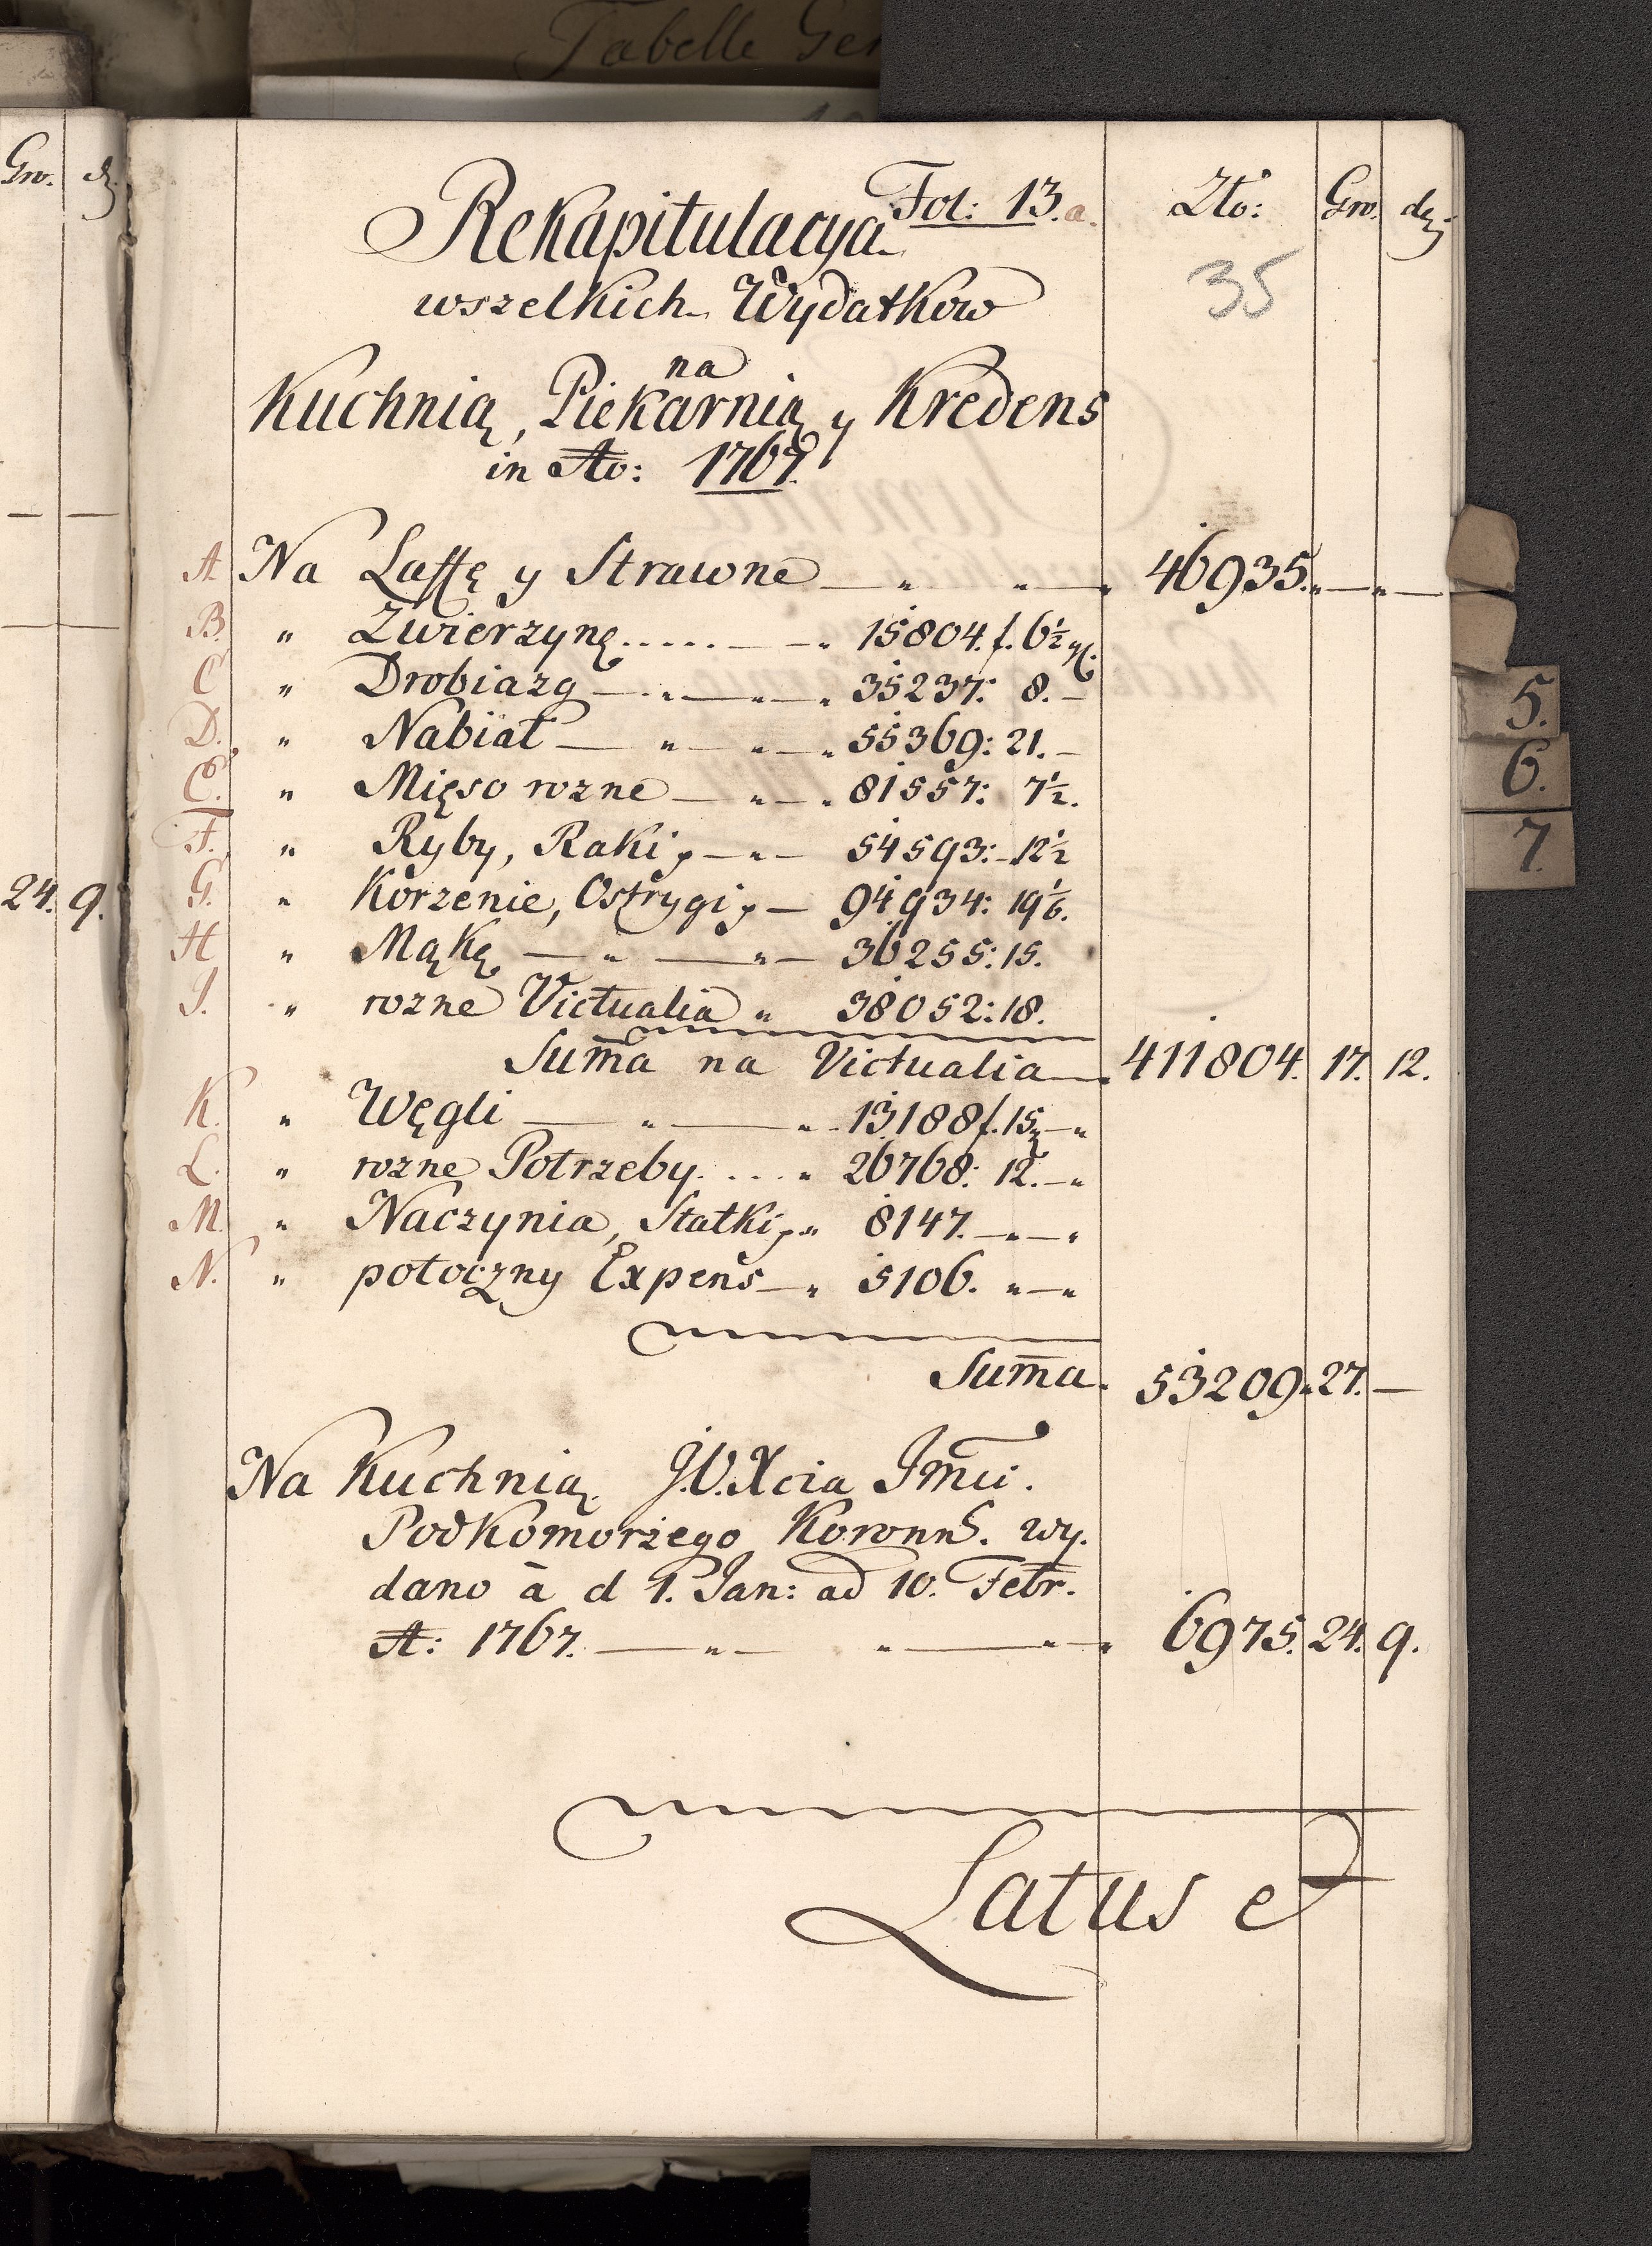 Tabelle Gen
Gro. d.
24. 9.
Fol: 13. a.
Złto: Gro. den:
Rekapitulacya
35
wszelkich Wydatkow
na
Kuchnią, Piekarnią y Kredens
in Ao: 1767.
A Na Laffę y Strawne — " " — 46935. " — " —
B. " Zwierzynę ..... — " 15804. f. 6½ gl.
C " Drobiazg — " — " — " 35237: 8. —
D. " Nabiał — " — " — " 55369: 21. —
E. " Mięso rozne — " — " 81557: 7½.
F. " Ryby, Raki, — " — 54593: 12½
G. " Korzenie, Ostrygi, — 94934: 19⅙.
H " Mąkę — " — " — 36255: 15.
I. " rozne Victualia " 38052: 18.
Sum̄a na Victualia — 411804. 17. 12.
K. " Węgli — " — " 13188 f. 15 — "
L. " rozne Potrzeby .... " 26768: 12. — "
M. " Naczynia, Statki, " 8147. — " — "
N. " potoczny Expens — " 5106. " — "
Sum̄a. 53209. 27. —
Na Kuchnią J.O.Xcia Jmći.
Podkomorżego Koronn. wy.
dano à d 1. Jan: ad 10. Febr.
A: 1767. — " — " — " — " 6975. 24. 9.
Latus
5.
6.
7.